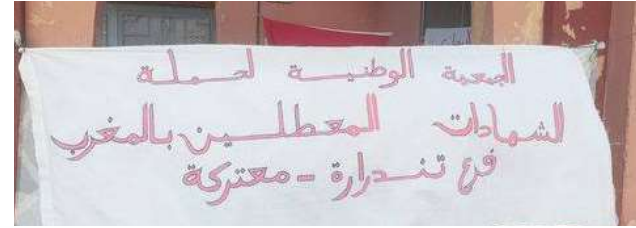 الجمعية الوطنية لحملة
الشهادات المعطلين بالمغرب
فرع تندرارة - معتركة